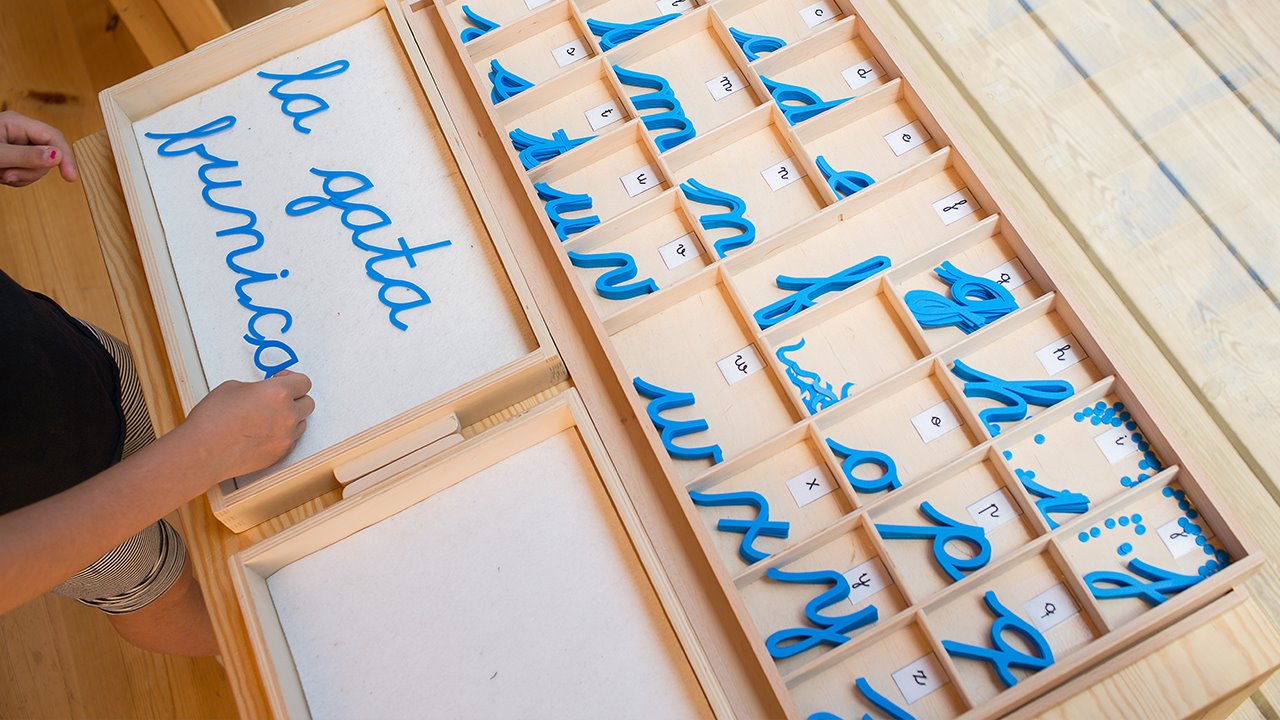 la gata
bunica
c
d
e
f
g
h
i
j
m
n
o
p
q
s
t
u
v
w
x
y
z